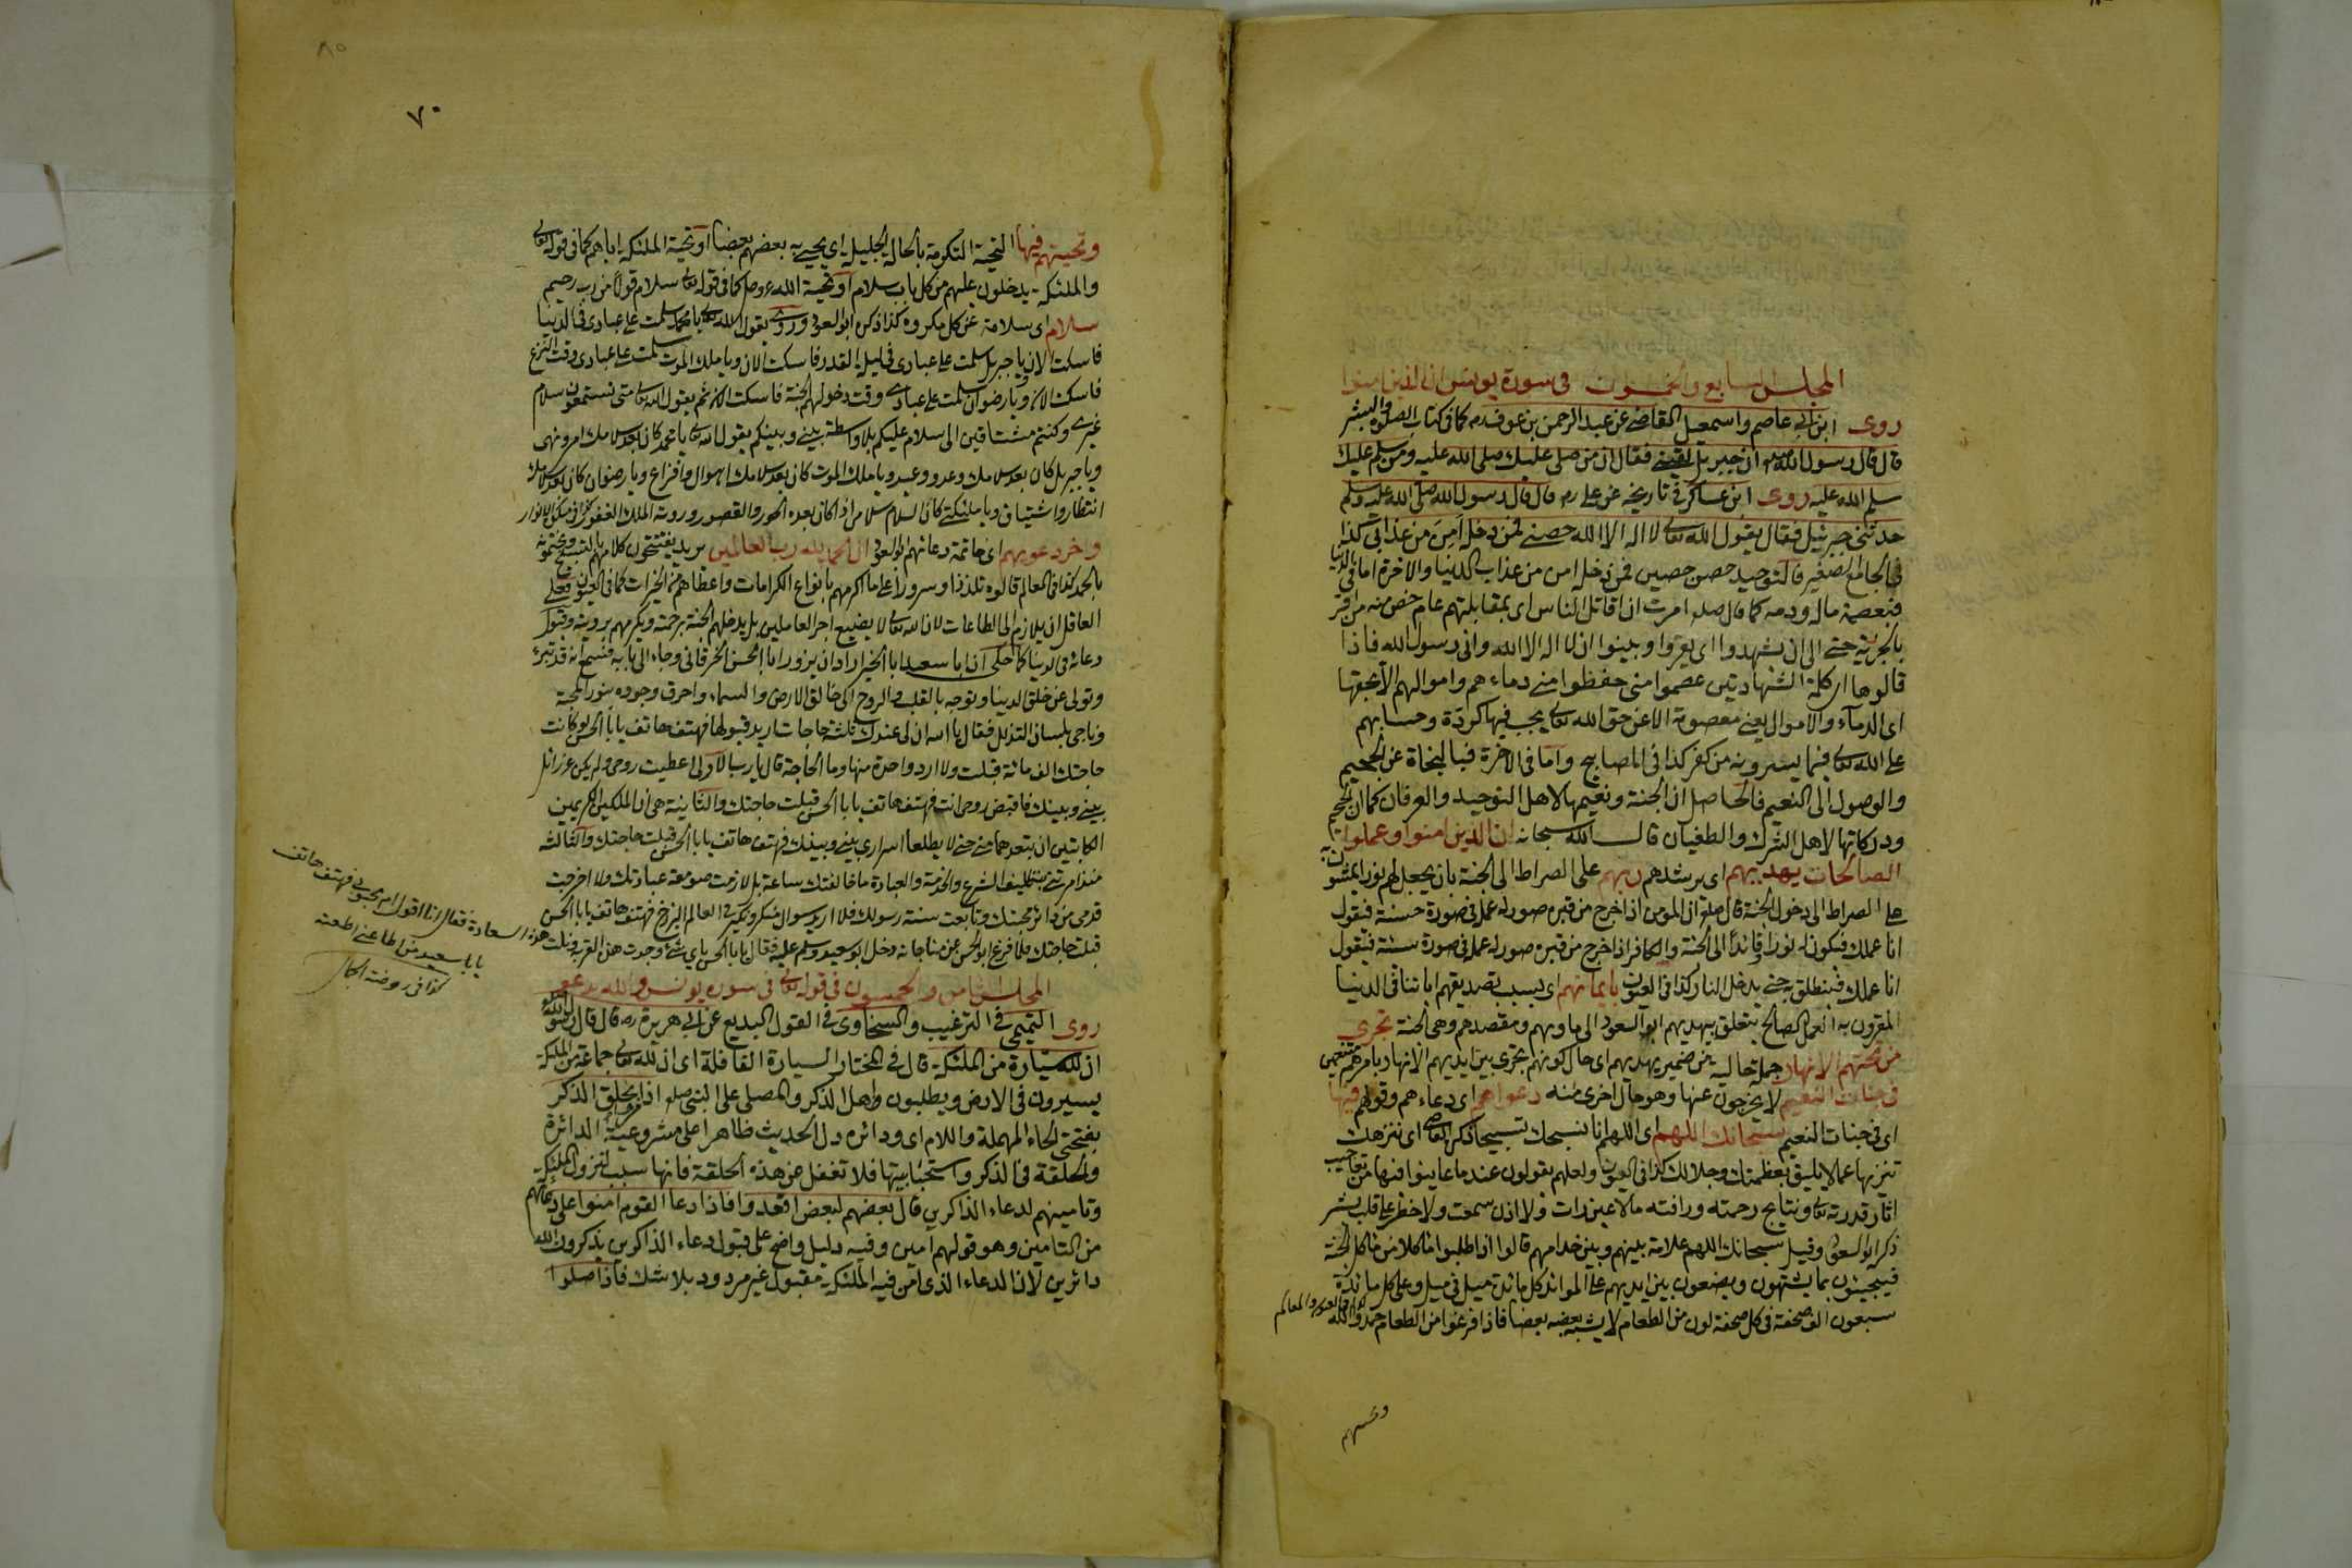 المجلس السابع والخمسون في سورة يونس ان الذين امنوا
روى ابن ابي عاصم واسمعيل القاضي عن عبد الرحمن بن عوف رضه كما في كتاب الصلوة والبشر
قال قال رسول الله صلعم ان جبريل لقيني فقال ان من صلى عليك صلى الله عليه ومن سلم عليك
سلم الله عليه روى ابن عساكر في تاريخه عن علي رضه قال قال رسول الله صلى الله عليه وسلم
حدثني جبرئيل فقال يقول الله تعالى لا اله الا الله حصني فمن دخله امن من عذابي كذا
في الجامع الصغير فالتوحيد حصن حصين فمن دخله امن من عذاب الدنيا والاخرة اما في الدنيا
فبعصمة ماله ودمه كما قال صلعم امرت ان اقاتل الناس اى بمقابلتهم عام خص منه من اقر
بالجزية حتى الى ان يشهدوا اى يقروا ويبينوا ان لا اله الا الله وانى رسول الله فاذا
قالوها اى كلمة الشهادتين عصموا منى حفظوا منى دماءهم واموالهم الا بحقها
اى الدماء والاموال يعنى معصومة الا عن حق الله تعالى يجب فيها كردة وحسابهم
على الله تعالى فيما يسرونه من كفر كذا في المصابيح واما في الاخرة فبالنجاة عن الجحيم
والوصول الى النعيم فالحاصل ان الجنة ونعيمها لاهل التوحيد والعرفان كما ان الجحيم
ودركاتها لاهل الشرك والطغيان قال الله سبحانه ان الذين امنوا وعملوا
الصالحات يهديهم اى يرشدهم ربهم على الصراط الى الجنة بان يجعل لهم نورا يمشون به
على الصراط الى دخول الجنة قال صلعم ان المؤمن اذا خرج من قبره صور له عمله في صورة حسنة فيقول
انا عملك فيكون له نورا وقائدا الى الجنة والكافر اذا خرج من قبره صور له عمله في صورة سيئة فيقول
انا عملك فينطلق به حتى يدخل النار كذا في العيون بايمانهم اى بسبب تصديقهم اياتنا في الدنيا
المقرون به العمل الصالح يتعلق بيهديهم ابو السعود الى ماويهم ومقصدهم وهى الجنة تجرى
من تحتهم الانهار جملة حالية من ضمير يهديهم اى حال كونهم تجرى بين ايديهم الانهار بامرهم متنعمين
في جنات النعيم لا يخرجون عنها وهو حال اخرى منه دعواهم اى دعاءهم وقولهم فيها
اى في جنات النعيم سبحانك اللهم اى اللهم انا نسبحك تسبيحا ذكره القاضى اى ننزهك
تنزيها عما لا يليق بعظمتك وجلالك كذا في العيون ولعلهم يقولون عند ما عاينوا فيها من تعاجيب
اثار قدرته تعالى ونتايج رحمته ورافته مالا عين رات ولا اذن سمعت ولا خطر على قلب بشر
ذكره ابو السعود وقيل سبحانك اللهم علامة بينهم وبين خدامهم قالوا اذا طلبوا ماكلا من ماكل الجنة
فيجيئون بما يشتهون ويضعون بين ايديهم على الموائد كل مائدة ميل في ميل وعلى كل مائدة
سبعون الف صحفة في كل صحفة لون من الطعام لا يشبه بعضه بعضا فاذا فرغوا من الطعام حمدوا الله
كذا في العيون والمعالم
وتحيتهم
٧٠
وتحيتهم فيها التحية التكرمة بالحالة الجليلة اى يحيى به بعضهم بعضا او تحية الملئكة اياهم كما في قوله تعالى
والملئكة يدخلون عليهم من كل باب سلام او تحية الله عز وجل كما في قوله تعالى سلام قولا من رب رحيم
سلام اى سلامة عن كل مكروه كذا ذكره ابو السعود وروى يقول الله تعالى يا محمد سلمت على عبادى في الدنيا
فاسكت الان يا جبريل سلمت على عبادى في ليلة القدر فاسكت الان ويا ملك الموت سلمت على عبادى وقت النزع
فاسكت الان ويا رضوان سلمت على عبادى وقت دخولهم الجنة فاسكت الان ثم يقول الله تعالى متى تستمعون سلام
غيرى وكنتم مشتاقين الى سلام عليكم بلا واسطة بينى وبينكم يقول الله تعالى يا محمد كان بعد سلامك امر ونهى
ويا جبريل كان بعد سلامك وعد ووعيد ويا ملك الموت كان بعد سلامك اهوال وافزاع ويا رضوان كان بعد سلامك
انتظار واشتياق ويا ملئكتى كان السلام سلاما اذا كان بعده الحور والقصور ورؤية الملك الغفور كذا في مشكوة الانوار
واخر دعويهم اى خاتمة دعائهم ابو السعود ان الحمد لله رب العالمين يريد يفتتحون كلامهم بالتسبيح ويختمونه
بالحمد كذا في المعالم قالوه تلذذا وسرورا على ما اكرمهم بانواع الكرامات واعطاهم من الخيرات كما في العيون فعلى
العاقل ان يلازم الى الطاعات لان الله تعالى لا يضيع اجر العاملين بل يدخلهم الجنة برحمته ويكرمهم برويته وقبول
دعائه في الدنيا كما حكى ان ابا سعيد ابا الخير اراد ان يزور ابا الحسن الخرقاني وجاء الى بابه فسمع انه قد تبرئ
وتولى عن خلق الدنيا وتوجه بالقلب والروح الى خالق الارض والسماء واحرق وجوده بنور المحبة
وناجى بلسان التذلل فقال يا الله ان لى عندك ثلثة حاجات اريد قبولها فهتف هاتف يا با الحسن لو كانت
حاجتك الف مائة قبلت ولا ارد واحدة منها وما الحاجة قال يا رب الاولى اعطيت روحى ولم يكن عزرائل
بينى وبينك فاقبض روحى انت فهتف هاتف يا با الحسن قبلت حاجتك والثانية هى ان الملكين الكريمين
الكاتبين ان تبعدهما منى حتى لا يطلعا اسرارى بينى وبينك فهتف هاتف يا با الحسن قبلت حاجتك والثالثة
منذ امرتنى بتكليف الشرع والخدمة والعبادة ما خالفتك ساعة بل لازمت صومعة عبادتك ولا اخرجت
قدمى من دائرة محبتك وتابعت سنة رسولك فلا اريد سوال منكر ونكير في العالم البرزخ فهتف هاتف يا با الحسن
قبلت حاجتك فلما فرغ ابو الحسن عن مناجاته دخل ابو سعيد وسلم عليه فقال يا با الحسن باى شئ وجدت هذا القرب ونلت
هذه السعادة فقال انا اقول هاتف
يا با سعيد من اطاعنى اطعته
كذا في روضة
المجلس الثامن والخمسون في قوله تعالى في سورة يونس والله يدعو
روى التيمى في الترغيب والسخاوى في القول البديع عن ابى هريرة رضه قال قال رسول الله
ان لله سيارة من الملئكة قال في المختار السيارة القافلة اى ان لله تعالى جماعة من الملئكة
يسيرون في الارض ويطلبون اهل الذكر والمصلى على النبى صلعم اذا بحلق الذكر
بفتحتى الحاء المهملة واللام اى ودائره دل الحديث ظاهرا على مشروعية الدائرة
والحلقة في الذكر واستحبابيتها فلا تغفل عن هذه الحلقة فانها سبب لنزول الملئكة
وتامينهم لدعاء الذاكرين قال بعضهم لبعض اقعدوا فاذا دعا القوم امنوا على دعائهم
من التامين وهو قولهم امين وفيه دليل واضح على قبول دعاء الذاكرين يذكرون الله
دائرين لان الدعاء الذى امن فيه الملئكة مقبول غير مردود بلا شك فاذا صلوا